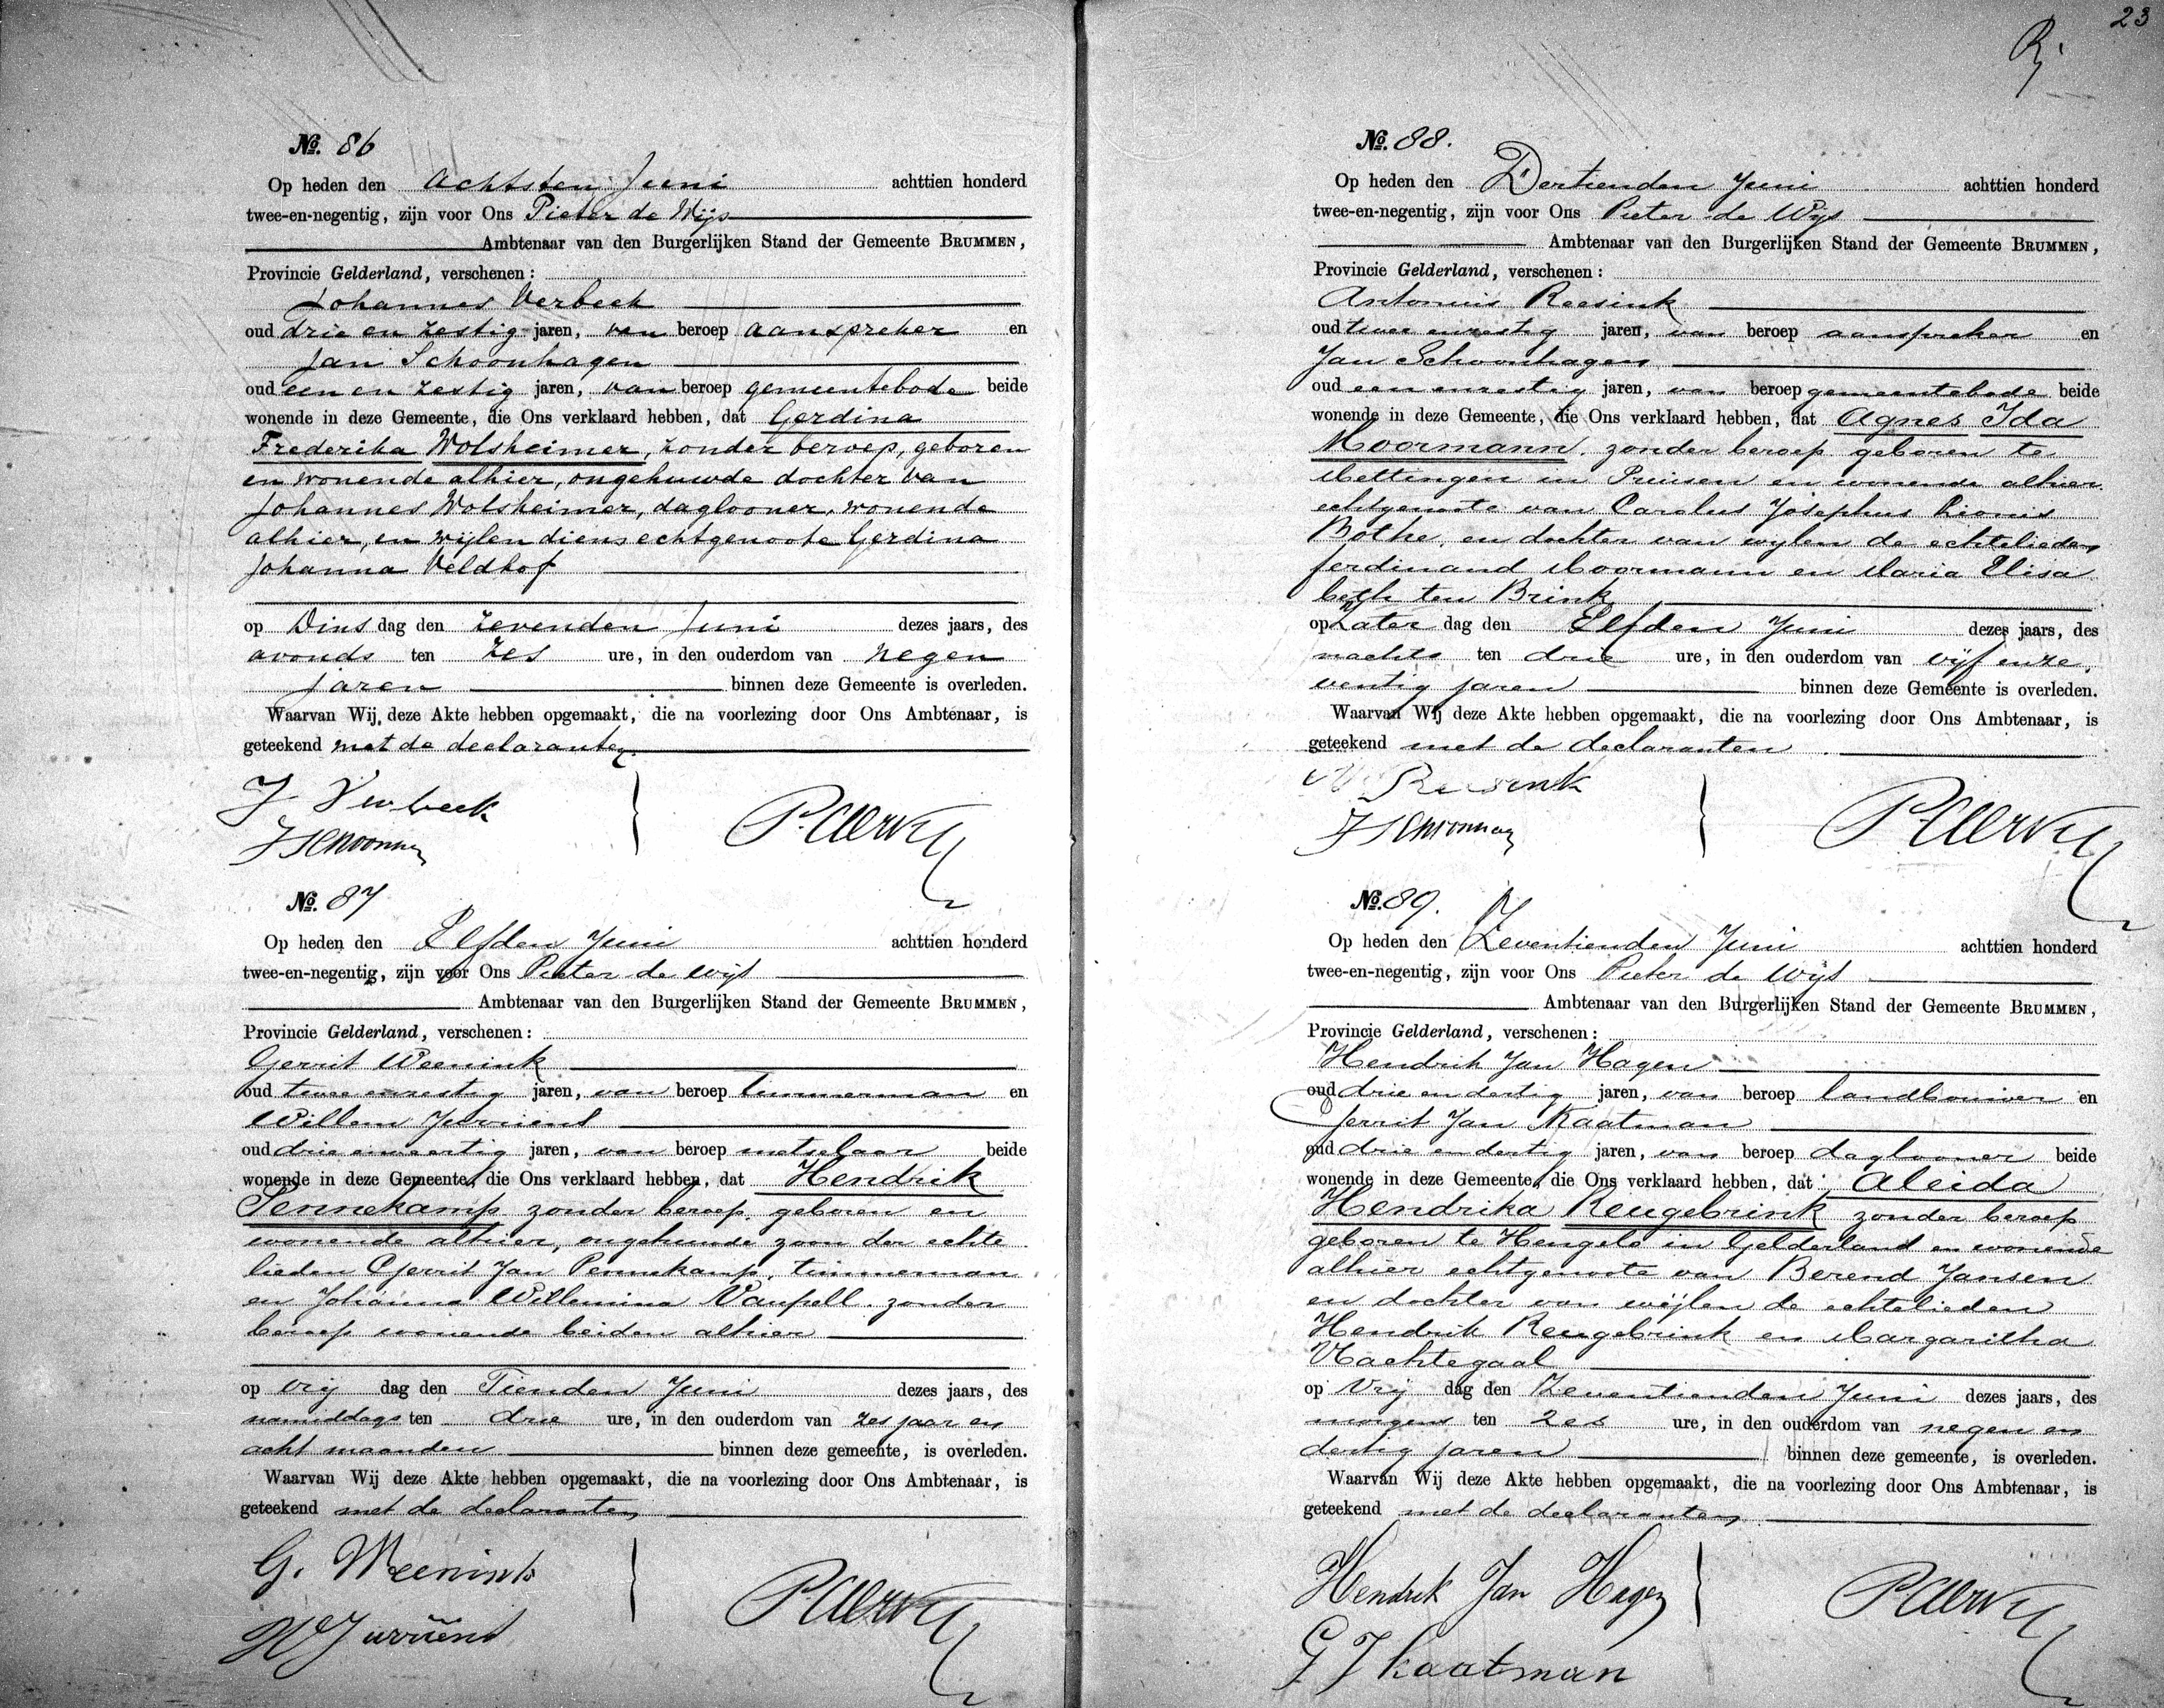 No. 86
Op heden den Achtsten Juni achttien honderd
twee-en-negentig, zijn voor Ons Pieter de Wijs
Ambtenaar van den Burgerlijken Stand der Gemeente BRUMMEN,
Provincie Gelderland, verschenen:
Johannes Verbeek
oud drie en zestig jaren, van beroep aanspreker en
Jan Schoonhagen
oud een en zestig jaren, van beroep gemeentebode beide
wonende in deze Gemeente, die Ons verklaard hebben, dat Gerdina
Frederika Wolsheimer, zonder beroep, geboren
en wonende alhier, ongehuwde dochter van
Johannes Wolsheimer, daglooner, wonende
alhier, en wijlen diens echtgenoote Gerdina
Johanna Veldhof
op Dins dag den zevenden Juni dezes jaars, des
avonds ten zes ure, in den ouderdom van negen
jaren binnen deze Gemeente is overleden.
Waarvan Wij deze Akte hebben opgemaakt, die na voorlezing door Ons Ambtenaar, is
geteekend met de declaranten.
J Verbeek
No. 87
Op heden den Elfden Juni achttien honderd
twee-en-negentig, zijn voor Ons Pieter de Wijs
Ambtenaar van den Burgerlijken Stand der Gemeente BRUMMEN,
Provincie Gelderland, verschenen:
Gerrit Weenink
oud twee enzestig jaren, van beroep timmerman en
Willem Jurriens
oud drie enveertig jaren, van beroep metselaar beide
wonende in deze Gemeente, die Ons verklaard hebben, dat Hendrik
Pennekamp zonder beroep, geboren en
wonende alhier, ongehuwde zoon der echte
lieden Gerrit Jan Pennekamp, timmerman
en Johanna Willemina Vaupell, zonder
beroep wonende beiden alhier
op Vrij dag den Tienden Juni dezes jaars, des
namiddags ten drie ure, in den ouderdom van zes jaar en
acht maanden binnen deze gemeente, is overleden.
Waarvan Wij deze Akte hebben opgemaakt, die na voorlezing door Ons Ambtenaar, is
geteekend met de declaranten
G. Weenink
W Jurriens
23
No. 88.
Op heden den Dertienden Juni achttien honderd
twee-en-negentig, zijn voor Ons Pieter de Wijs
Ambtenaar van den Burgerlijken Stand der Gemeente BRUMMEN,
Provincie Gelderland, verschenen:
Antonius Reesink
oud twee enzestig jaren, van beroep aanspreker en
Jan Schoonhagen
oud een enzestig jaren, van beroep gemeentebode beide
wonende in deze Gemeente, die Ons verklaard hebben, dat Agnes Ida
Moormann, zonder beroep geboren te
Mettingen in Pruisen en wonende alhier
echtgenoote van Carolus Josephus Dionis
Bothe, en dochter van wylen de echtelieden
Ferdinand Moormann en Maria Elisa
beth ten Brink
op Zater dag den Elfden Juni dezes jaars, des
nachts ten drie ure, in den ouderdom van vijf enze,
ventig jaren binnen deze Gemeente is overleden.
Waarvan Wij deze Akte hebben opgemaakt, die na voorlezing door Ons Ambtenaar, is
geteekend met de declaranten
Reesink
No. 89.
Op heden den Zeventienden Juni achttien honderd
twee-en-negentig, zijn voor Ons Pieter de Wijs
Ambtenaar van den Burgerlijken Stand der Gemeente BRUMMEN,
Provincie Gelderland, verschenen:
Hendrik Jan Hagen
oud drie en dertig jaren, van beroep landbouwer en
Gerrit Jan Kaatman
oud drie en dertig jaren, van beroep daglooner beide
wonende in deze Gemeente, die Ons verklaard hebben, dat Aleida
Hendrika Reugebrink zonder beroep
geboren te Hengelo in Gelderland en wonende
alhier echtgenoote van Berend Jansen
en dochter van wijlen de echtelieden
Hendrik Reugebrink en Margaritha
Nachtegaal
op Vrij dag den Zeventienden Juni dezes jaars, des
morgens ten zes ure, in den ouderdom van negen en
dertig jaren binnen deze gemeente, is overleden.
Waarvan Wij deze Akte hebben opgemaakt, die na voorlezing door Ons Ambtenaar, is
geteekend met de declaranten
Hendrik Jan Hagen
G J Kaatman